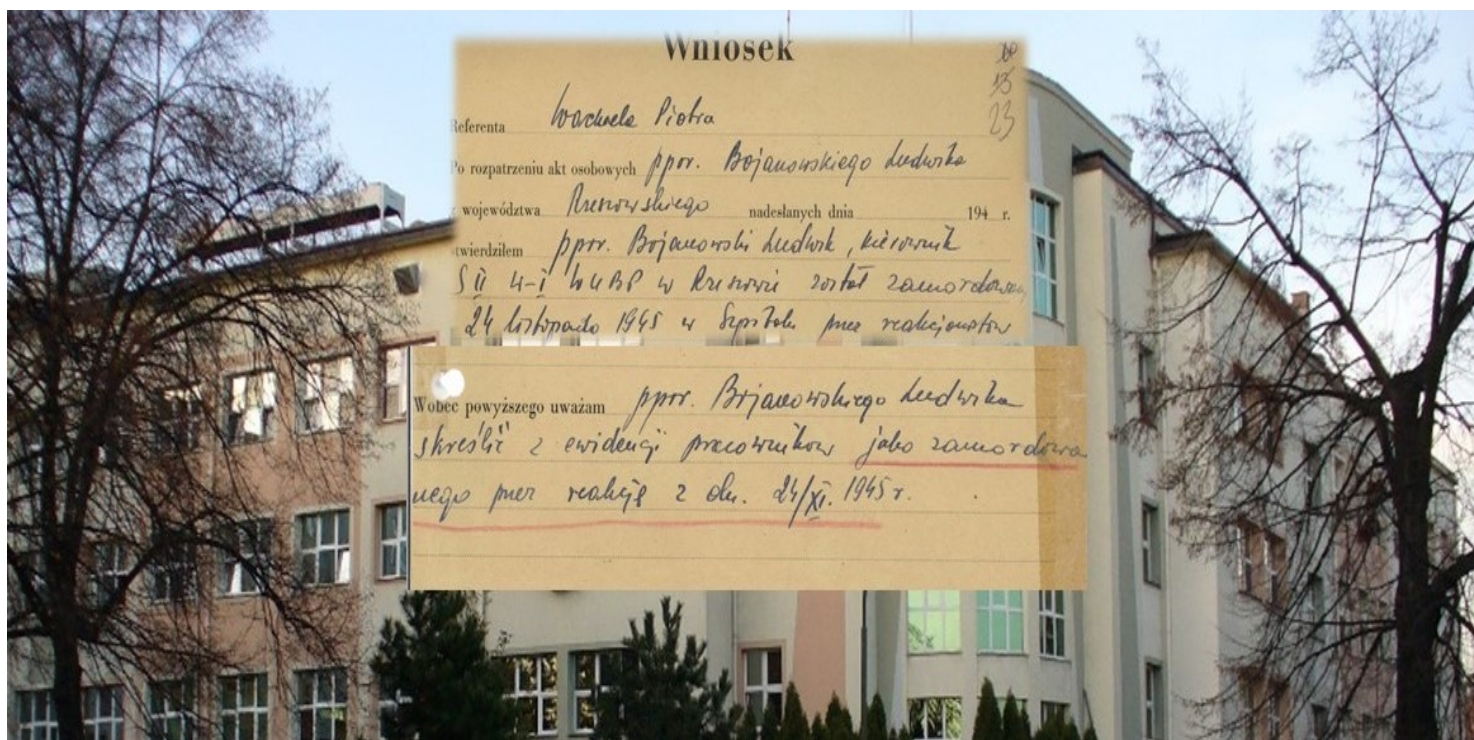 Wniosek
20
35
23
Referenta Wachala Piotra
Po rozpatrzeniu akt osobowych ppor. Bojanowskiego Ludwika
województwa Rzeszowskiego nadesłanych dnia 194 r.
stwierdziłem ppor. Bojanowski Ludwik, kierownik
S II W-I WUBP w Rzeszowie został zamordowany
24 listopada 1945 w Szpitalu przez reakcjonistów
Wobec powyższego uważam ppor. Bojanowskiego Ludwika
skreślić z ewidencji pracowników jako zamordowa
nego przez reakcję z dn. 24/XI. 1945 r.